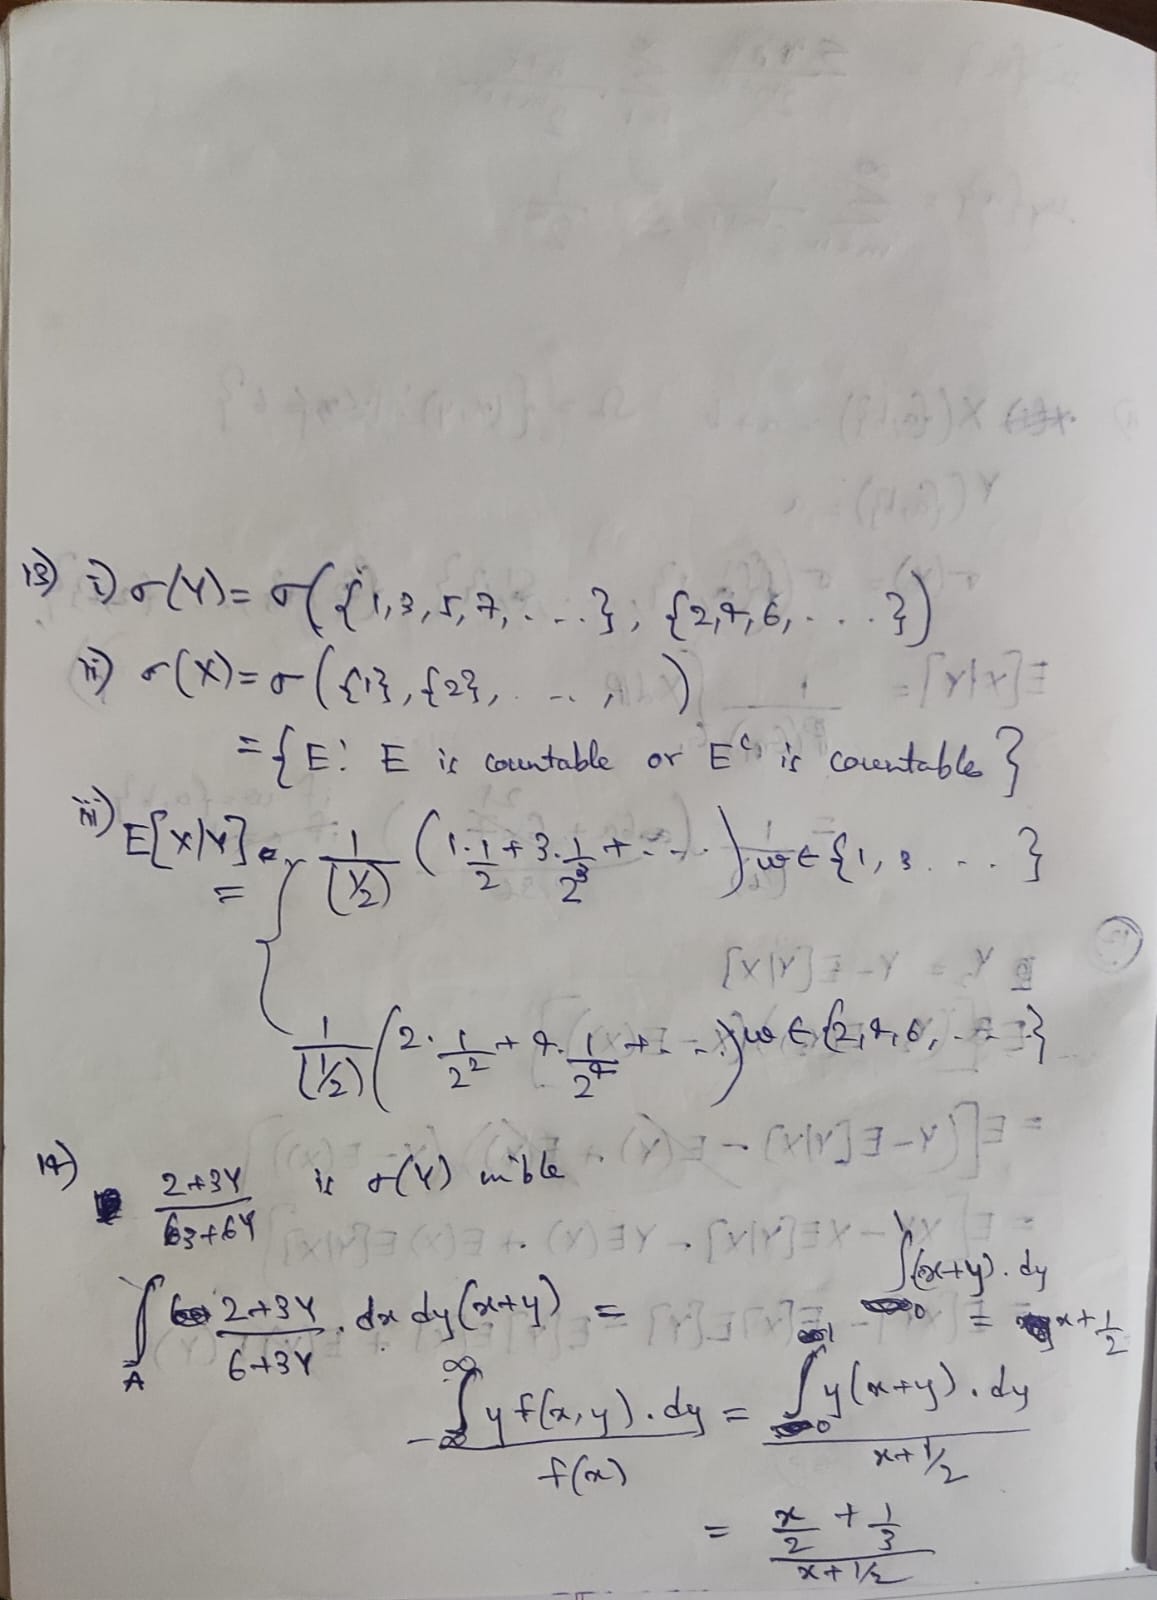 13) i) σ(Y) = σ({1,3,5,7, ....}, {2,4,6, ....})
ii) σ(X) = σ({1}, {2}, ...., )
= {E: E is countable or Eᶜ is countable}
iii) E[X|Y] = { 1/(1/2) (1·1/2 + 3·1/2³ + ....) ω ∈ {1, 3 ....}
1/(1/2) (2·1/2² + 4·1/2⁴ + ....) ω ∈ {2,4,6, ....}
14) (2+3Y)/(63+6Y) is σ(Y) m'ble
∫(x+y).dy
∫_A (2+3Y)/(6+3Y) . dx dy (x+y) =
= x+1/2
∫_{-∞}^{∞} y f(x,y).dy / f(x) = ∫_0^1 y(x+y).dy / (x+1/2)
= (x/2 + 1/3)/(x+1/2)